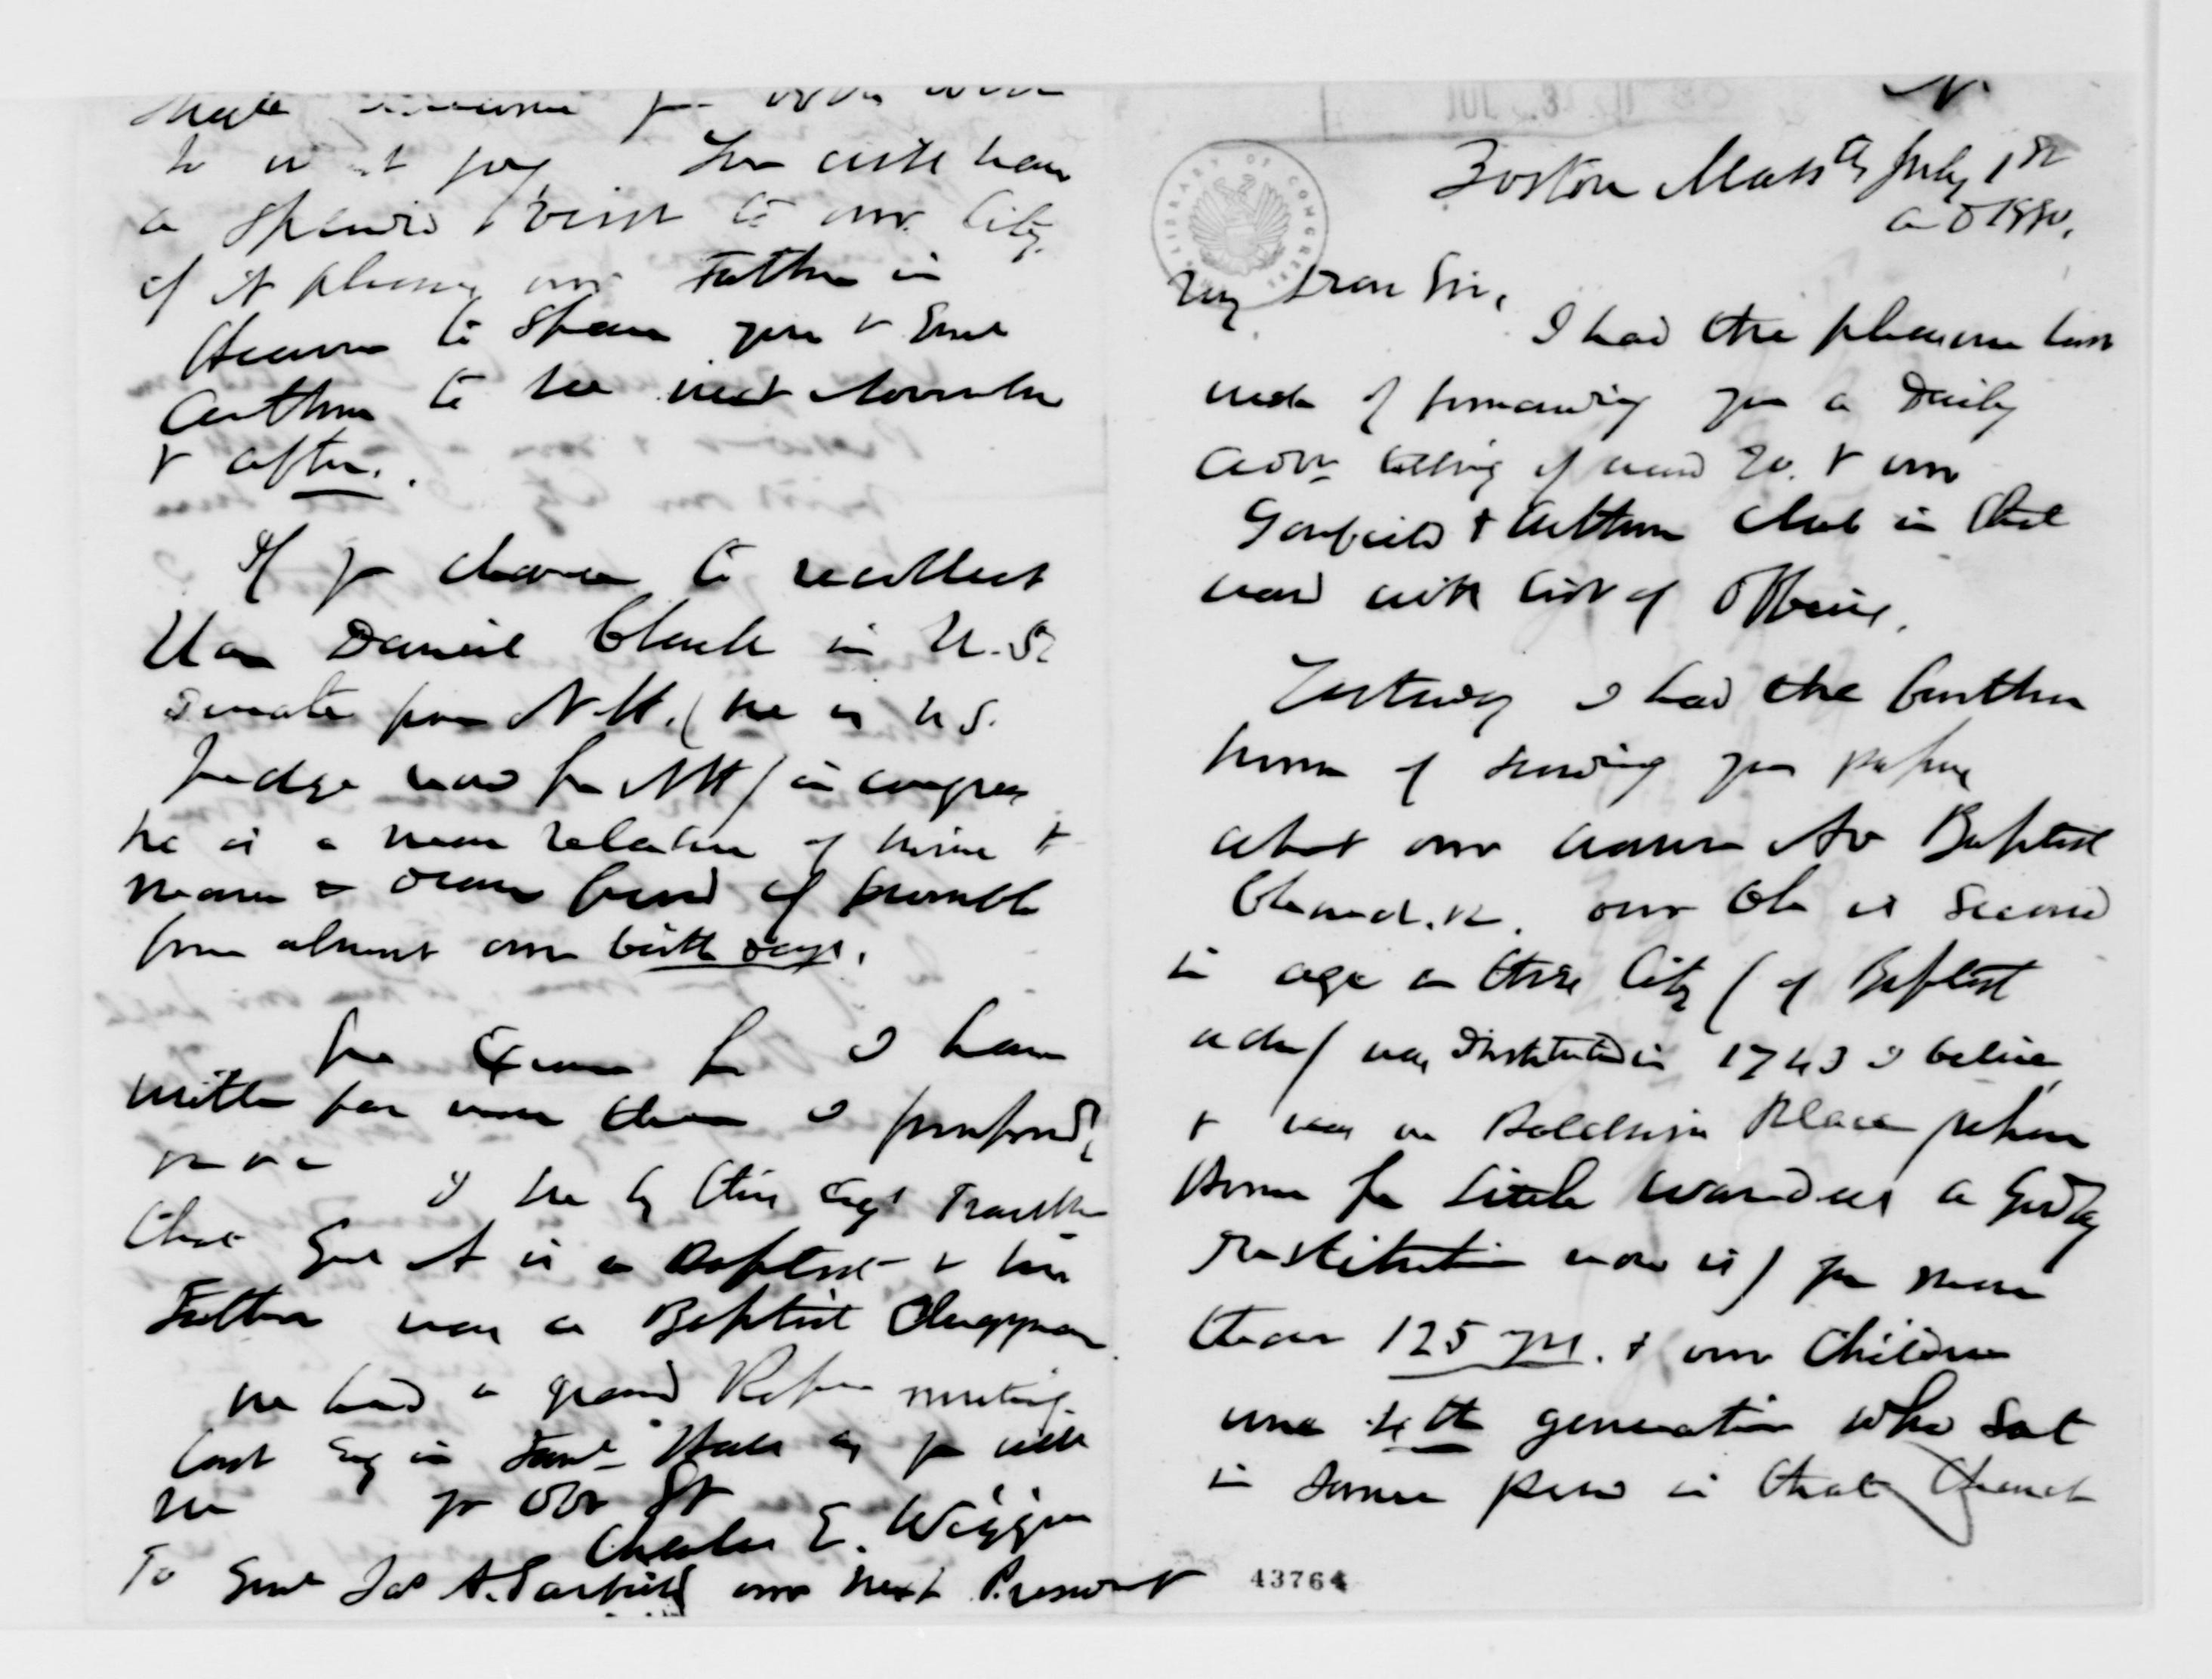 Boston Mass tts July 1st
a d 1880.
My Dear Sir,
I had the pleasure last
week of forwarding you a Daily
Advr telling of ward 20. & our
Garfield & Arthur Club in that
ward with list of Officers.
Yesterday I had the further
honor of sending you papers
about our Warren Av Baptist
Church. our Ch is second
in age in this City (of Baptist
was Instituted in 1743 I believe
& was in Baldwin Place where
Home for Little Wanderers a Godly
Institution now is) for more
than 125 yrs. & our Children
were 4th generation who sat
in same pew in that Church
43764
to
a splendid to our City
if it pleases our Father in
Heaven to spare you & Genl
Arthur to see next November
& after.
If yo chance to recollect
Hon Daniel Clark in U.S.
Senate from N.H. (he is U S.
Judge now for NH) in congress
he is a near relative of mine &
nearer & dearer friend of
from almost our birth days.
for I have
written far more than I
I see by this Evgs Traveller
that Genl A is a Baptist & his
Father was a Baptist Clergyman
we had a grand meeting
last Evg in Hall as yo will
see yr Obt St
Charles E. Wiggin
To Genl Jas A. Garfield our next President
LIBRARY OF CONGRESS